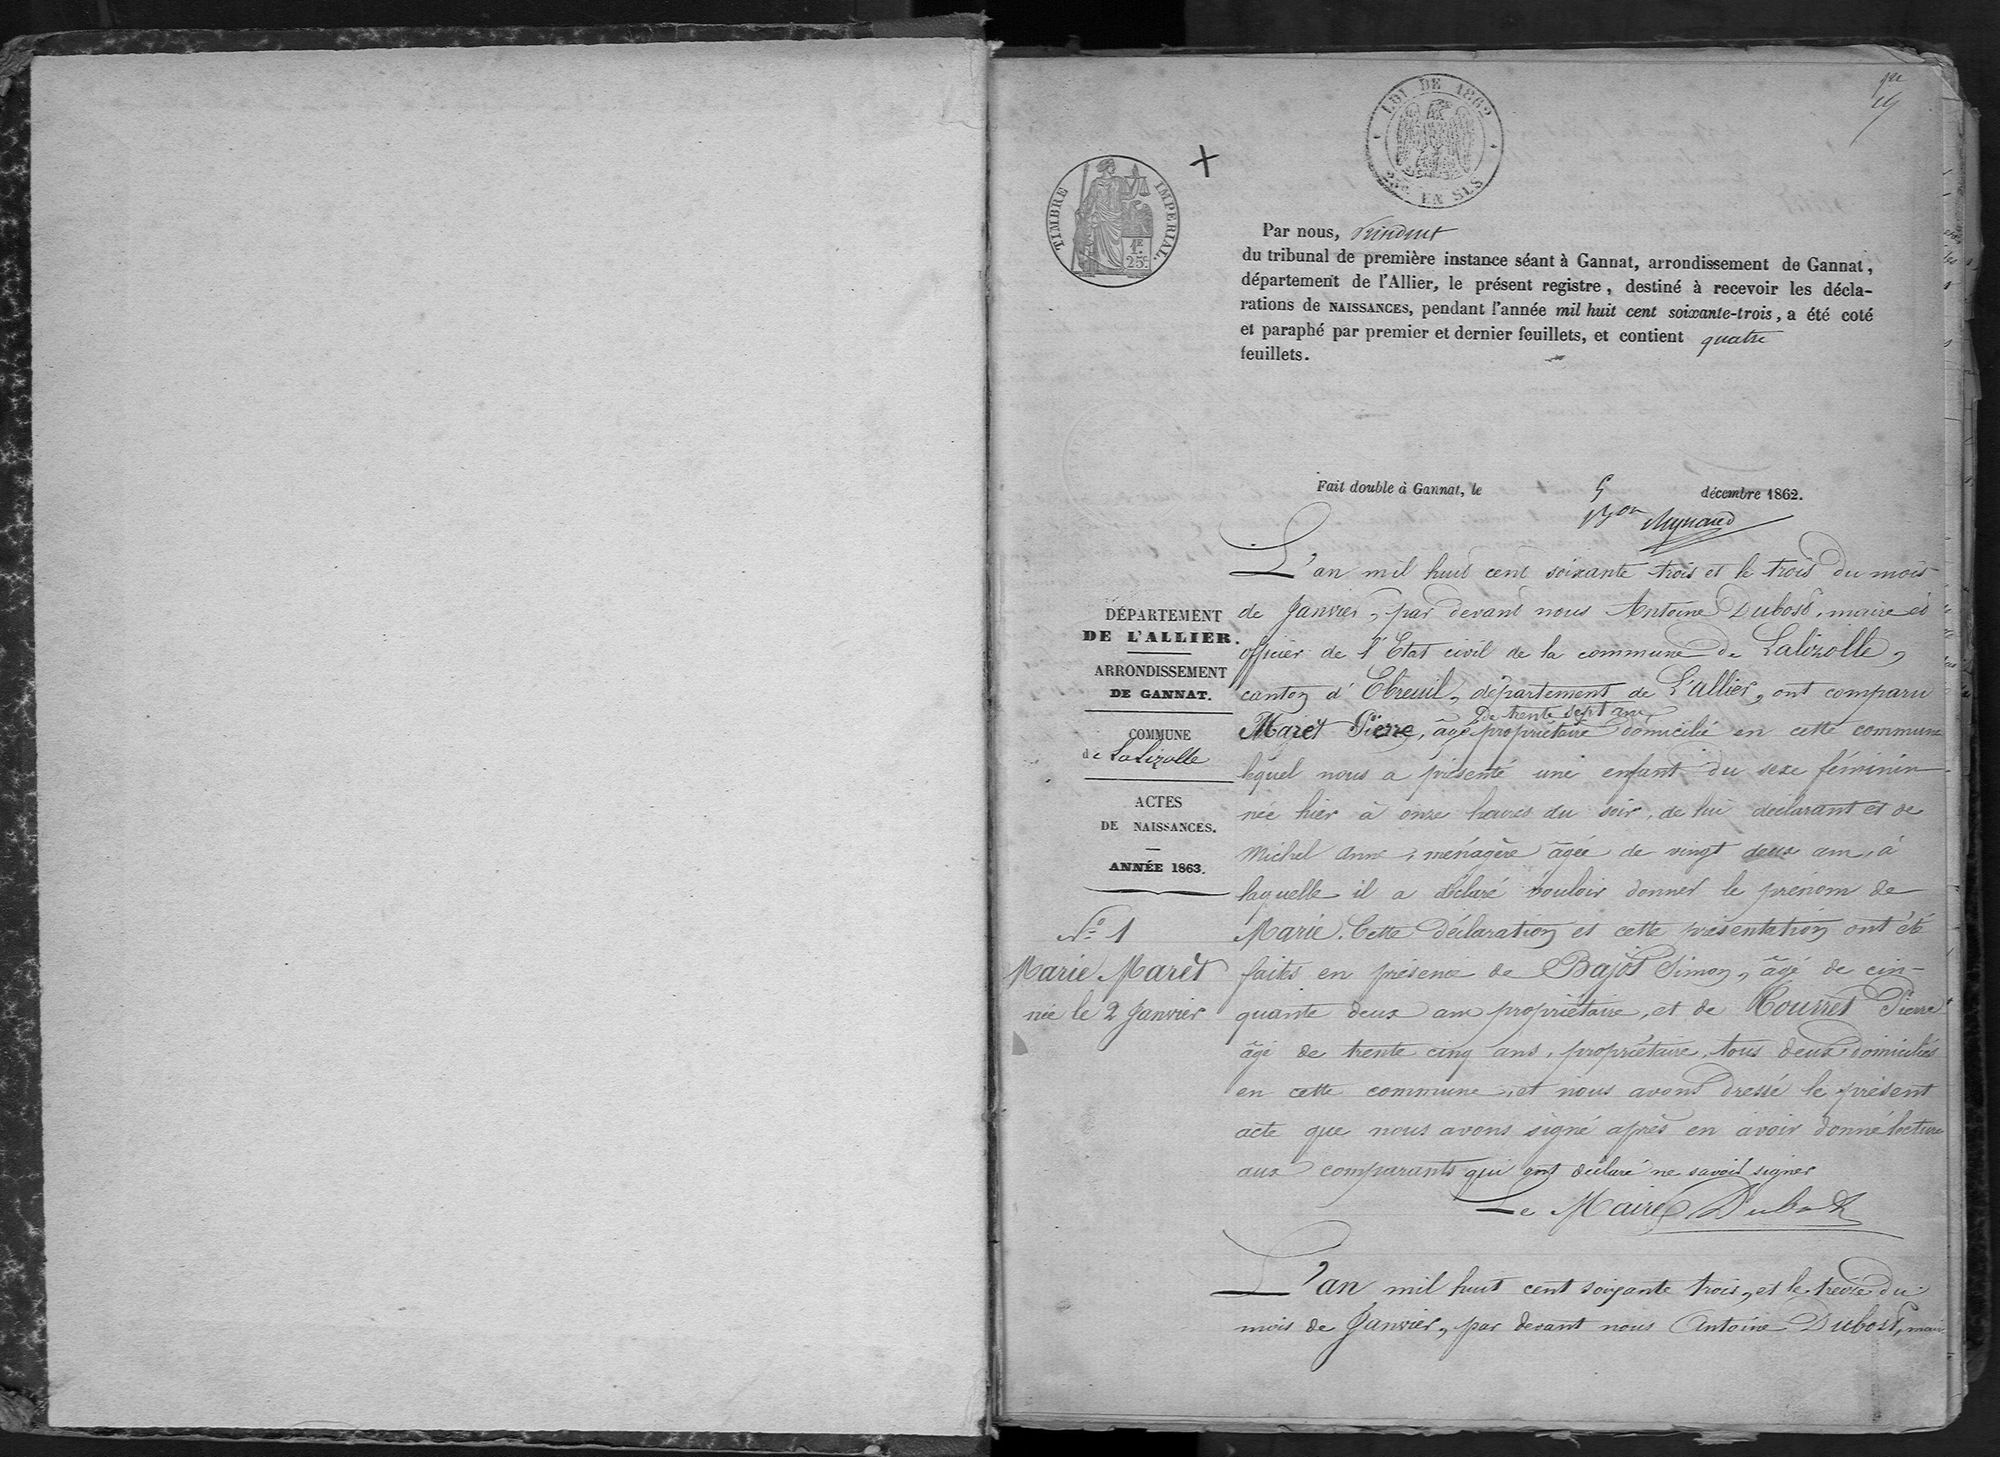 1re
LOI DE 1862
25c EN SUS
TIMBRE IMPERIAL.
1F.
25c.
Par nous,
du tribunal de première instance séant à Gannat, arrondissement de Gannat,
département de l'Allier, le présent registre, destiné à recevoir les décla-
rations de NAISSANCES, pendant l'année mil huit cent soixante-trois, a été coté
et paraphé par premier et dernier feuillets, et contient quatre
feuillets.
Fait double à Gannat, le décembre 1862.
DÉPARTEMENT
DE L'ALLIER.
ARRONDISSEMENT
DE GANNAT.
COMMUNE
de LaLizolle
ACTES
DE NAISSANCES.
ANNÉE 1863.
No 1
Marie Maret
née le 2 Janvier
L'an mil huit cent soixante trois et le trois du mois
de Janvier, par devant nous Antoine Dubost, maire et
officier de l'Etat civil de la commune de Lalizolle,
canton d'Ebreuil, département de L'allier, ont comparu
De trente sept ans,
Maret Pierre, âgé propriétaire domicilié en cette commune
lequel nous a présenté une enfant du sexe féminin
née hier à onze heures du soir, de lui déclarant et de
Michel Anne, ménagère âgée de vingt deux ans, à
laquelle il a déclaré vouloir donner le prénom de
Marie. Cette déclaration et cette présentation ont été
faites en présence de Bajot Simon, âgé de cin-
quante deux ans propriétaire, et de Tourret Pierre
âgé de trente cinq ans, propriétaire, tous deux domiciliés
en cette commune, et nous avons dressé le présent
acte que nous avons signé après en avoir donné lecture
aux comparants qui ont déclaré ne savoir signer
Le Maire Dubost
L'an mil huit cent soixante trois, et le treize du
mois de Janvier, par devant nous Antoine Dubost, maire